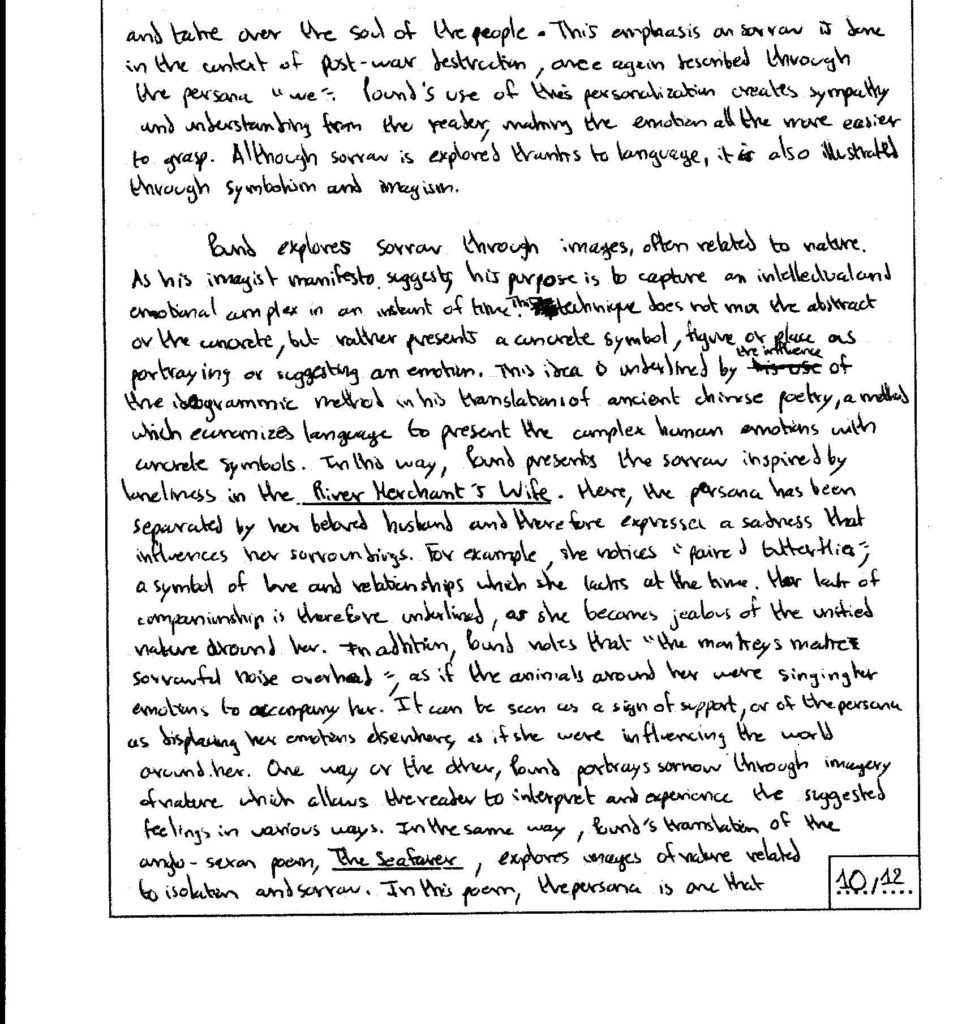 and take over the soul of the people. This emphasis on sorrow is done
in the context of post-war destruction, once again described through
the persona "we". Pound's use of this personalization creates sympathy
and understanding from the reader, making the emotion all the more easier
to grasp. Although sorrow is explored thanks to language, it is also illustrated
through symbolism and imagism.
Pound explores sorrow through images, often related to nature.
As his imagist manifesto suggests, his purpose is to capture an intellectual and
emotional complex in an instant of time. This technique does not mix the abstract
or the concrete, but rather presents a concrete symbol, figure or place as
portraying or suggesting an emotion. This idea is underlined by the influence of
the ideogrammic method in his translations of ancient chinese poetry, a method
which economizes language to present the complex human emotions with
concrete symbols. In this way, Pound presents the sorrow inspired by
loneliness in the River Merchant's Wife. Here, the persona has been
separated by her beloved husband and therefore expresses a sadness that
influences her surroundings. For example, she notices "paired butterflies",
a symbol of love and relationships which she lacks at the time. Her lack of
companionship is therefore underlined, as she becomes jealous of the unified
nature around her. In addition, Pound notes that "the monkeys make
sorrowful noise overhead", as if the animals around her were singing her
emotions to accompany her. It can be seen as a sign of support, or of the persona
as displacing her emotions elsewhere, as if she were influencing the world
around her. One way or the other, Pound portrays sorrow through imagery
of nature which allows the reader to interpret and experience the suggested
feelings in various ways. In the same way, Pound's translation of the
anglo-saxon poem, The Seafarer, explores images of nature related
to isolation and sorrow. In this poem, the persona is one that
10/12